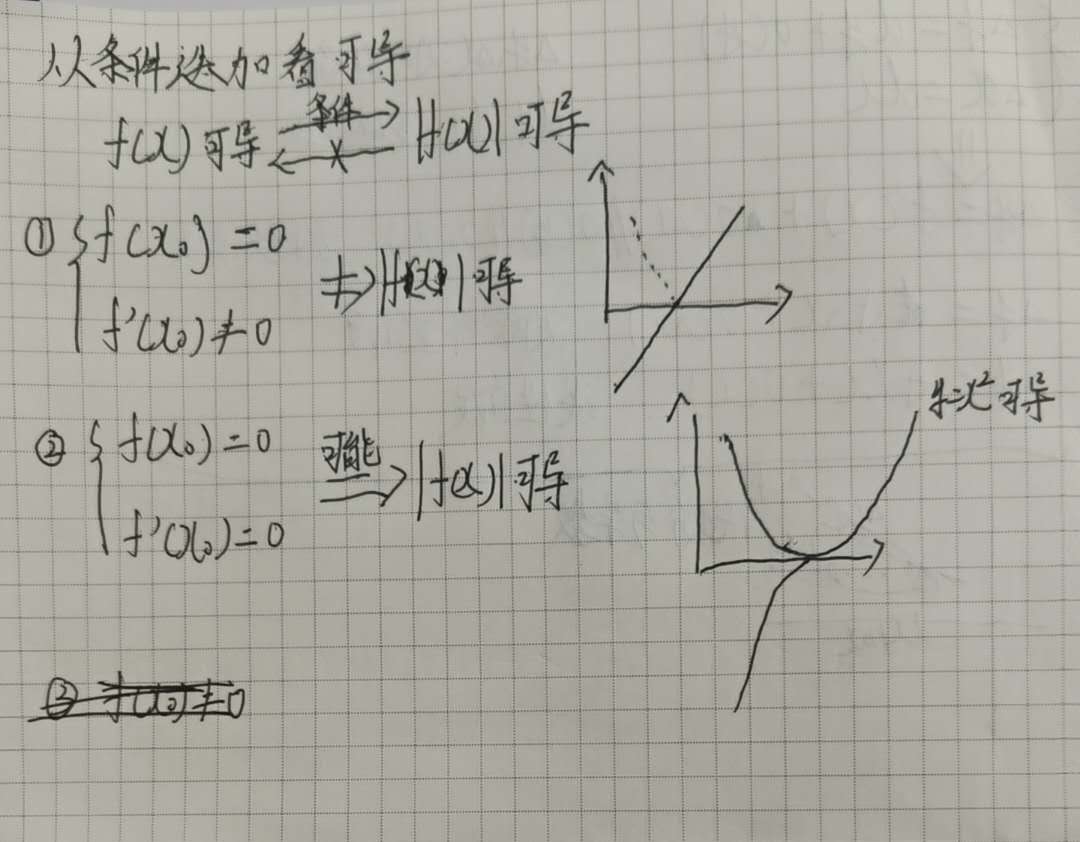 从条件迭加看可导
f(x)可导 条件 → ← × |f(x)|可导
① { f(x₀) = 0
f'(x₀) ≠ 0
⇏ |f(x)| 可导
② { f(x₀) = 0
f'(x₀) = 0
可能 ⇒ |f(x)| 可导
y=x² 可导
③ f(x₀) ≠ 0